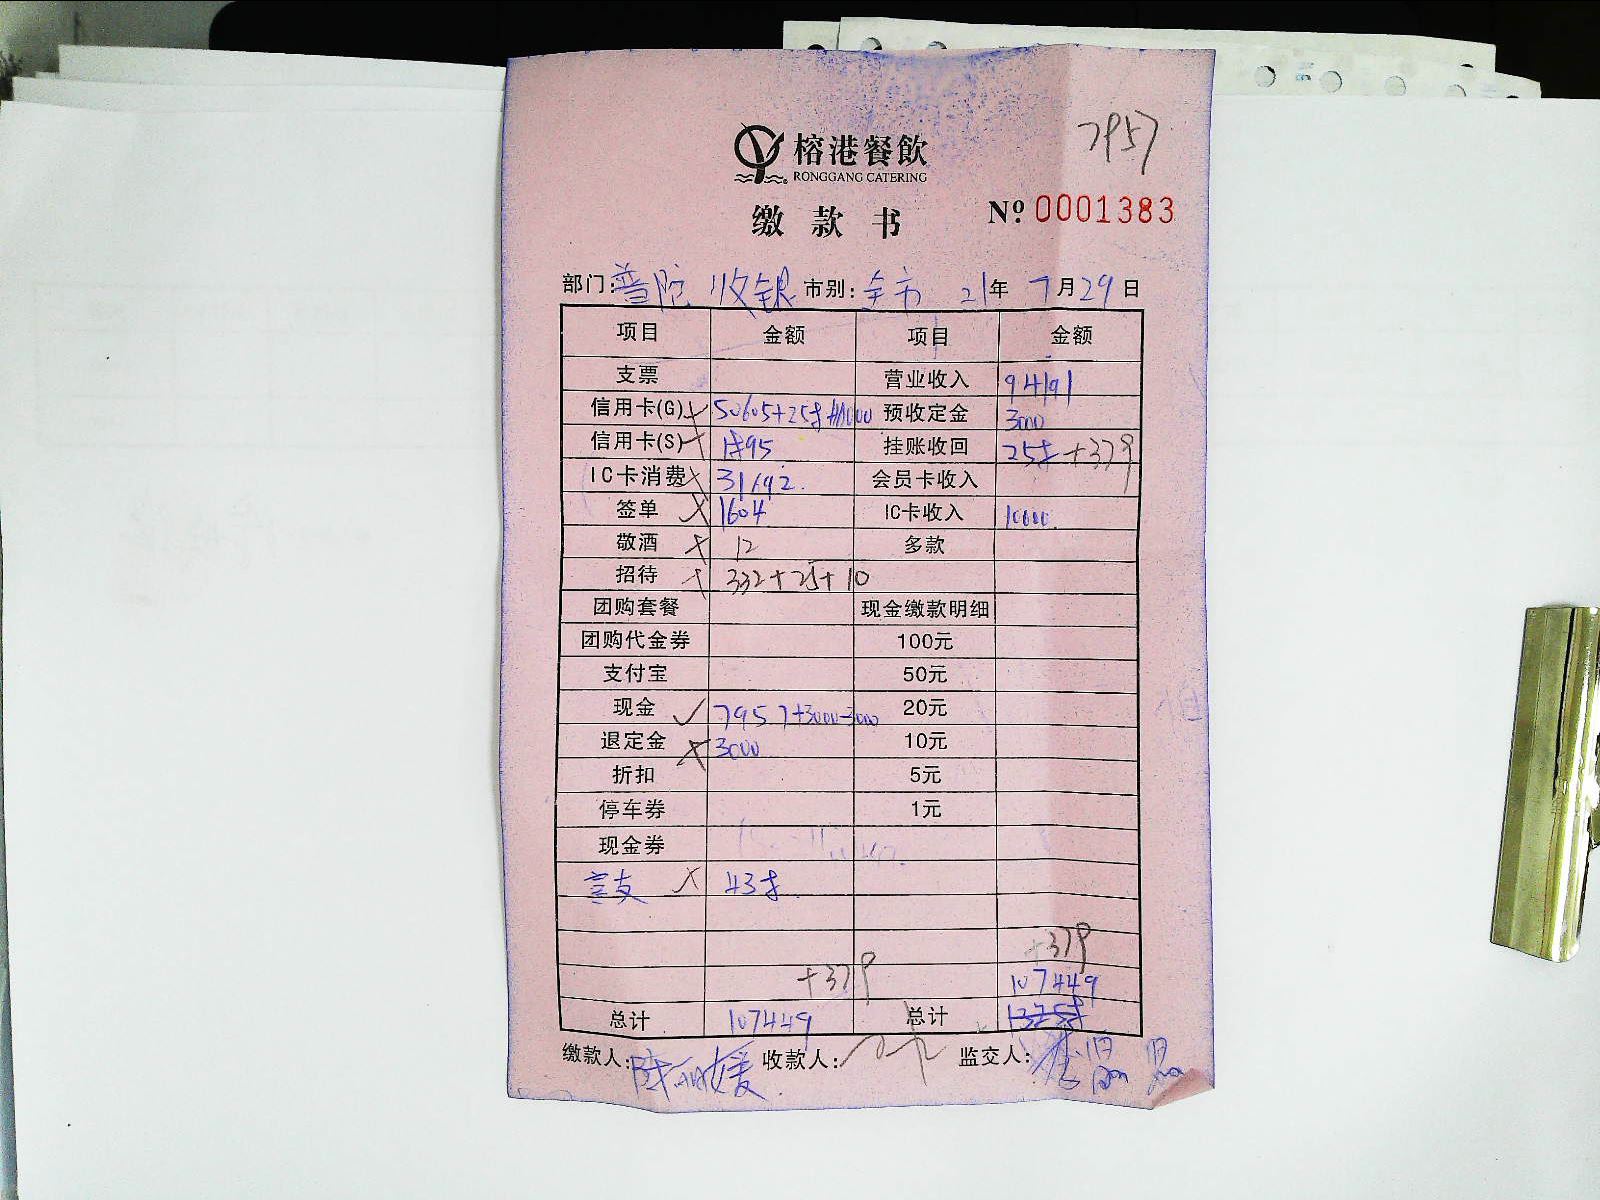 7957
榕港餐飲
RONGGANG CATERING
缴款书
Nº 0001383
部门: 普陀 收银 市别: 全市 21年 7月29日
项目 金额 项目 金额
支票 营业收入 94191
信用卡(G) 50605+258+11000 预收定金 3000
信用卡(S) 1895 挂账收回 258+379
IC卡消费 31192. 会员卡收入
签单 1604 IC卡收入 10000.
敬酒 12 多款
招待 332+25+10
团购套餐 现金缴款明细
团购代金券 100元
支付宝 50元
现金 7957+3000-3000 20元
退定金 3000 10元
折扣 5元
停车券 1元
现金券
438
+379
+379
107449
总计 107449 总计
缴款人: 收款人: 监交人: